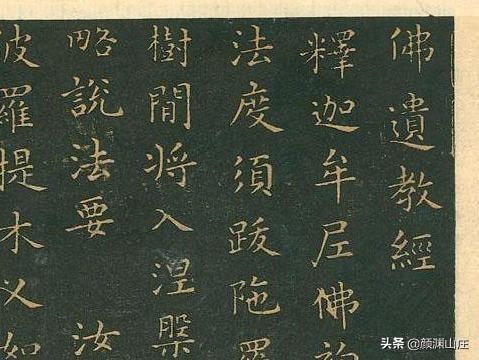 佛遺教經
釋迦牟尼佛初
法度須跋陁羅
樹間将入涅槃
略說法要 汝
波羅提木叉如
头条 @颜渊山庄